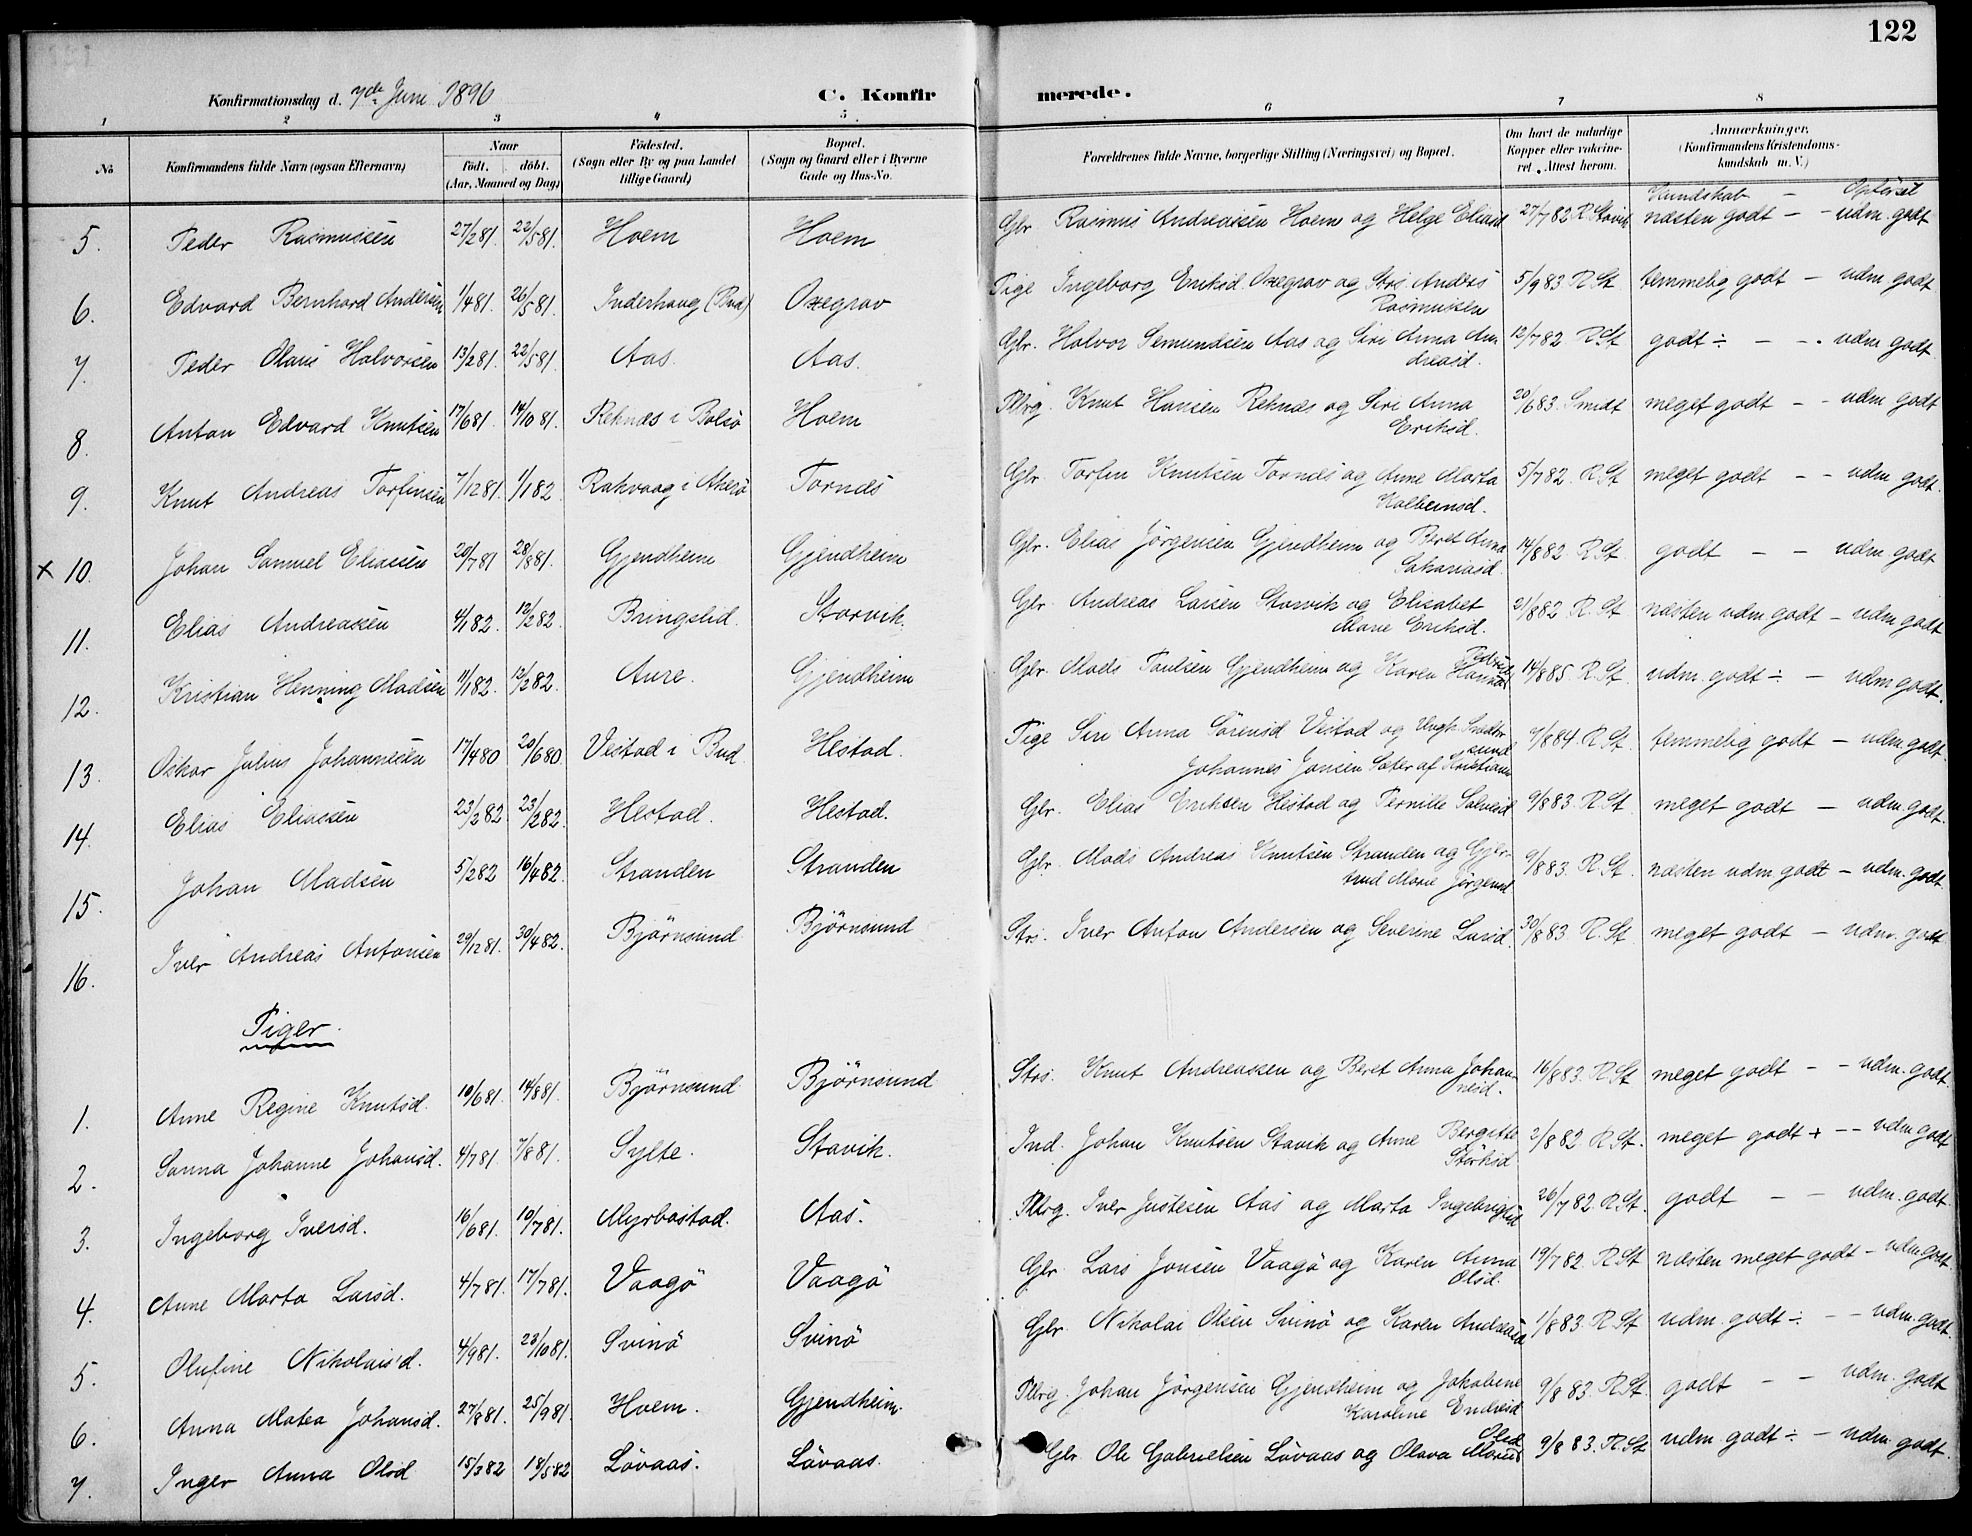 122
Konfirmationsdag d. 7de Juni 1896
C. Konfirmerede.
1 2 3 4 5 6 7 8
No
Konfirmandens fulde Navn (ogsaa Efternavn)
Naar
født. døbt.
(Aar, Maaned og Dag)
Fødested.
(Sogn eller By og paa Landet
tillige Gaard)
Bopæl.
(Sogn og Gaard eller i Byerne
Gade og Hus-No.
Forældrenes fulde Navne, borgerlige Stilling (Næringsvei) og Bopæl.
Om havt de naturlige
Kopper eller vakcine-
ret. Attest herom.
Anmærkninger.
(Konfirmandens Kristendoms-
kundskab m. V.)
Kundskab - Opførsel
5. Peder Rasmussen 27/2 81. 22/5 81. Hoem Hoem Gbr. Rasmus Andreassen Hoem og Helge Eliasd 27/7 82 R. Stavik næsten godt - - udm. godt
6. Edvard Bernhard Andersen 1/4 81. 26/5 81. Inderhaug (Bud) Oxegrav Pige Ingeborg Eriksd. Oxegrav og Strs. Anders
Rasmussen 5/9 83 R. St temmelig godt - udm godt
7. Peder Olaus Halvorsen 13/2 81. 22/5 81. Aas. Aas. Gbr. Halvor Semundsen Aas og Siri Anna An
dreasd. 12/7 82 R. St godt ÷ - - udm godt
8. Anton Edvard Knutsen 17/6 81. 14/10 81. Reknæs i Bolsø Hoem Plbrg. Knut Hansen Reknæs og Siri Anna
Eriksd. 20/6 83. Smidt meget godt - - udm godt
9. Knut Andreas Torfinsen 7/12 81. 1/1 82. Rakvaag i Akerø Tornæs Gbr Torfin Knutsen Tornæs og Anne Marta
Kolbeinsd. 5/7 82. R. St meget godt - - udm godt.
x 10. Johan Samuel Eliassen 20/7 81 28/8 81. Gjendheim Gjendheim Gbr. Elias Jørgensen Gjendheim og Beret Anna
Sakariasd. 14/8 82. R. St godt - - udm godt
11. Elias Andreassen 4/1 82. 12/2 82. Bringslid. Storvik. Gbr Andreas Larsen Storvik og Elisabet
Marie Eriksd. 21/8 82 R. St næsten udm godt - udm godt
12. Kristian Henning Madsen 11/1 82. 12/2 82. Aure. Gjendheim Gbr. Mads Paulsen Gjendheim og Karen 14/8 85. R. St. udm. godt ÷ - udm godt.
13. Oskar Julius Johannesen 17/4 80 20/6 80 Vestad i Bud. Hestad. Pige Siri Anna Sørensd Vestad og Ungk.
Johannes Jonsen Sæter af Kristian
sund 9/8 84. R. St. temmelig godt - udm. godt.
14. Elias Eliassen 23/2 82 23/2 82. Hestad. Hestad. Gbr. Elias Eriksen Hestad og Pernille 9/8 83. R. St meget godt - udm. godt.
15. Johan Madsen 5/2 82 16/4 82. Stranden Stranden Gbr. Mads Andreas Knutsen Stranden og Gjer-
trud Marie Jørgensd 9/8 83. R. St. næsten udm godt - udm. godt.
16. Iver Andreas Antonsen 29/12 81. 30/4 82. Bjørnsund Bjørnsund Strs. Iver Anton Andersen og Severine Larsd. 30/8 83 R. St. meget godt - udm. godt
Piger.
1. Anne Regine Knutsd. 10/6 81. 14/8 81. Bjørnsund Bjørnsund Strs. Knut Andreassen og Beret Anna Johan-
nesd. 16/8 83. R. St meget godt - - udm. godt.
2. Sanna Johanne Johansd. 4/7 81. 7/8 81. Sylte. Stavik. Ind. Johan Knutsen Stavik og Anne Bergitte
Størksd 2/8 82 R. St. meget godt + - - udm godt
3. Ingeborg Iversd. 16/6 81. 10/7 81. Myrbostad. Aas. Plbrg. Iver Justesen Aas og Marta Ingebrigtsd 26/7 82. R. St. godt - - udm. godt.
4. Anne Marta Larsd. 4/7 81. 17/7 81. Vaagø Vaagø Gbr. Lars Jonsen Vaagø og Karen Anna
Olsd. 19/7 82. R. St næsten meget godt - udm. godt
5. Olufine Nikolaisd. 4/9 81. 23/10 81. Svinø Svinø Gbr. Nikolai Olsen Svinø og Karen Andreasd 1/8 83. R. St udm. godt ÷ - udm. godt
6. Anna Matea Johansd. 27/8 81. 25/9 81. Hoem. Gjendheim. Plbrg. Johan Jørgensen Gjendheim og Jakobine
Karoline Endresd 9/8 83. R. St. godt - - udm. godt
7. Inger Anna Olsd 15/3 82 18/5 82 Løvaas. Løvaas. Gbr. Ole Gabrielsen Løvaas og Olava 9/8 83. R. St udm. godt ÷ - udm. godt.